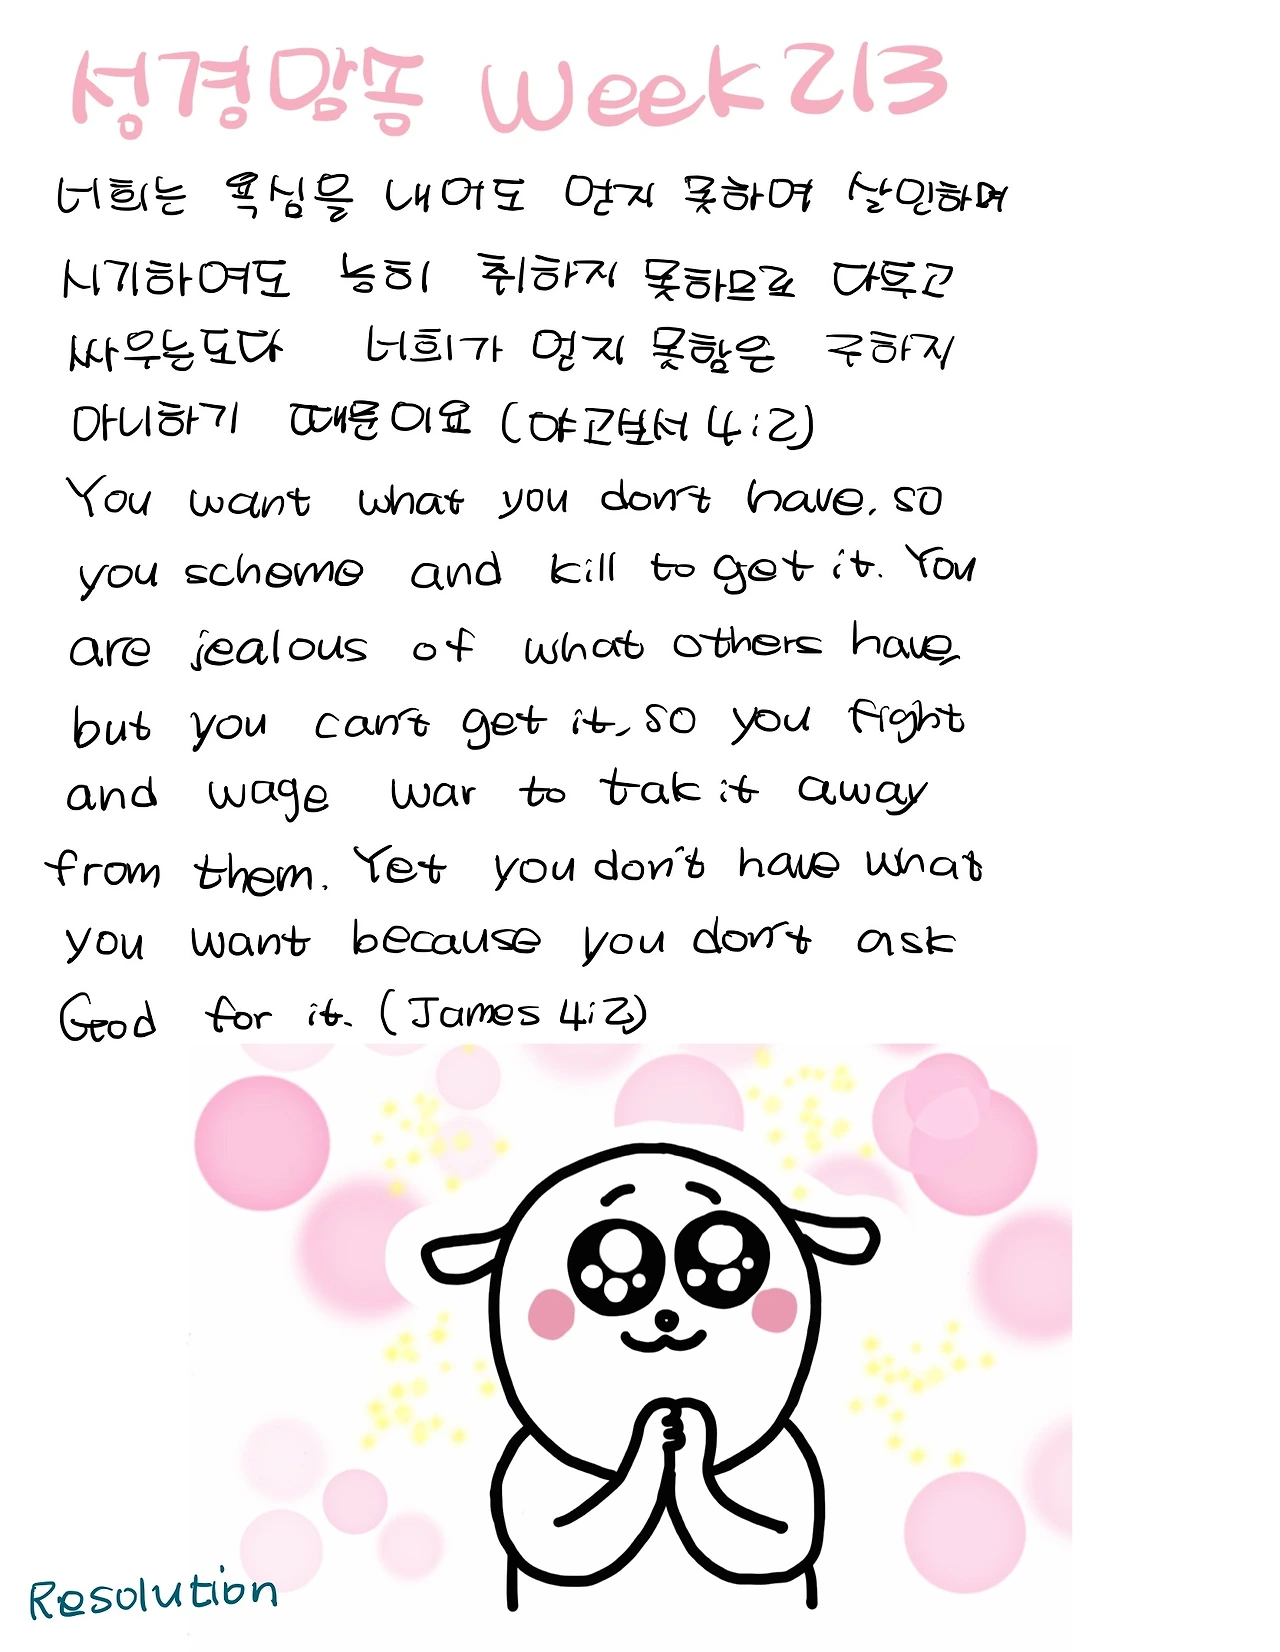 성경암송 Week 213
너희는 욕심을 내어도 얻지 못하며 살인하며
시기하여도 능히 취하지 못하므로 다투고
싸우는도다 너희가 얻지 못함은 구하지
아니하기 때문이요 (야고보서 4:2)
You want what you don't have, so
you scheme and kill to get it. You
are jealous of what others have,
but you can't get it, so you fight
and wage war to tak it away
from them. Yet you don't have what
you want because you don't ask
God for it. (James 4:2)
Resolution